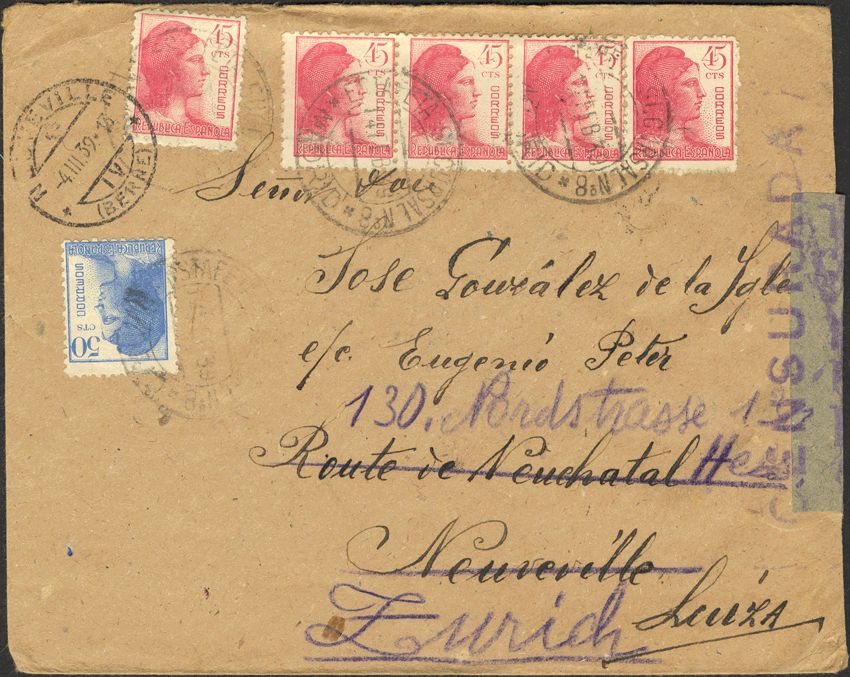 45 CTS CORREOS REPUBLICA ESPAÑOLA
45 CTS CORREOS REPUBLICA ESPAÑOLA
45 CTS CORREOS REPUBLICA ESPAÑOLA
45 CTS CORREOS REPUBLICA ESPAÑOLA
45 CTS CORREOS REPUBLICA ESPAÑOLA
-4.III.39-
IV
(BERNE)
ESTAFETA SUCURSAL Nº 8
SUCURSAL Nº 8
Señor Don
50 CTS CORREOS REPUBLICA ESPAÑOLA
Jose González de la Igle
e/c. Eugenio Peter
130, Nordstrasse 1
Route de Neuchatal
Neuveville
Zurich
Suiza
CENSURADA